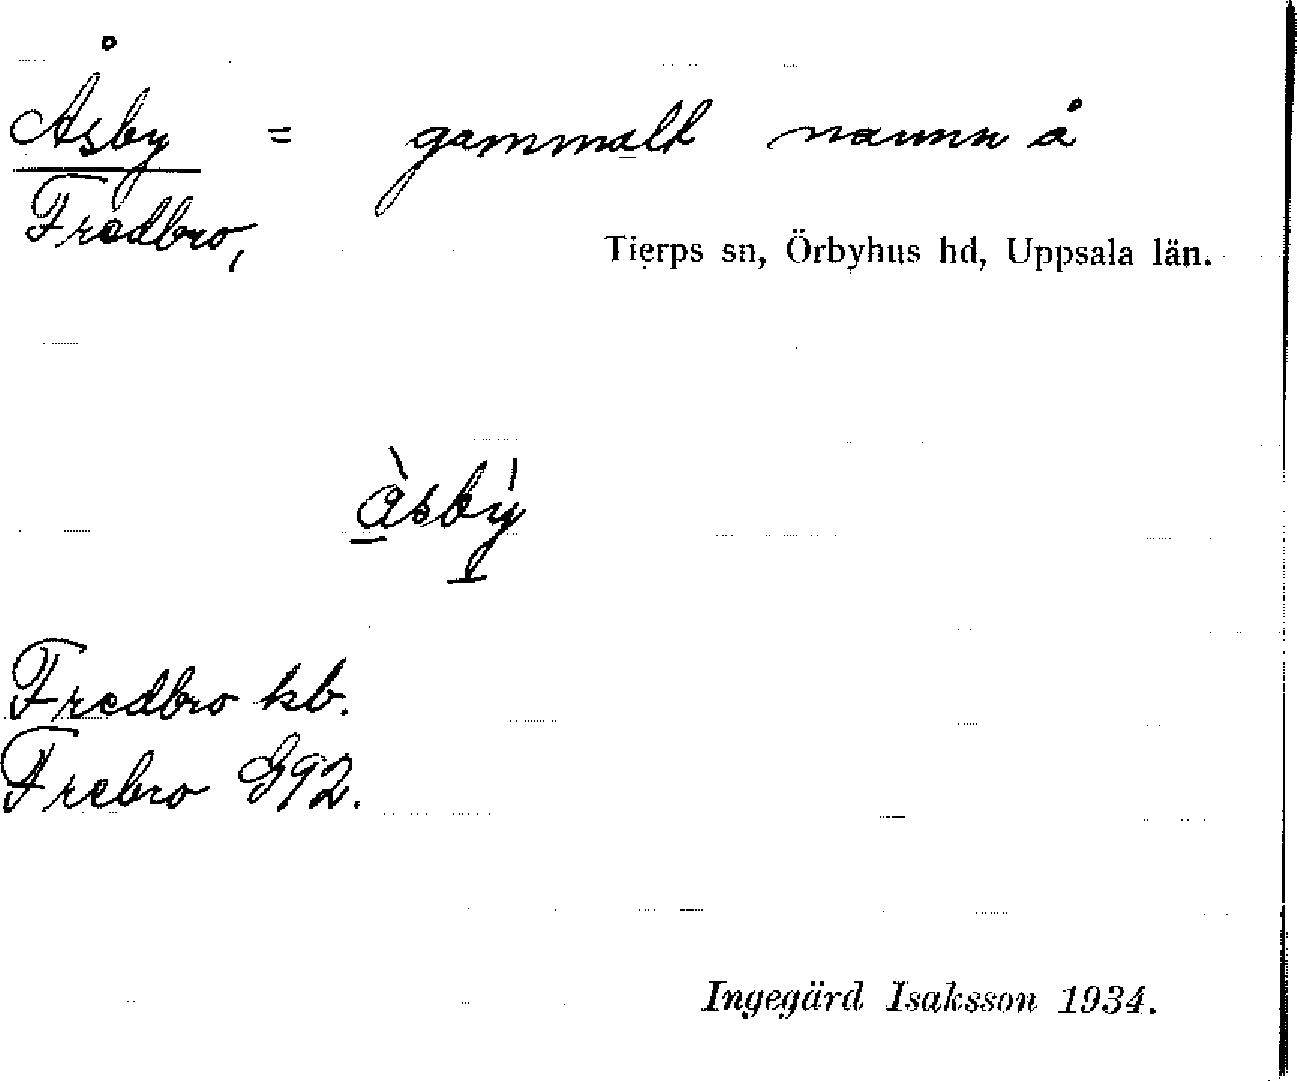 Åsby = gammalt namn å
Fredbro,
Tierps sn, Örbyhus hd, Uppsala län.
àsbý
Fredbro kb.
Frebro G92.
Ingegärd Isaksson 1934.